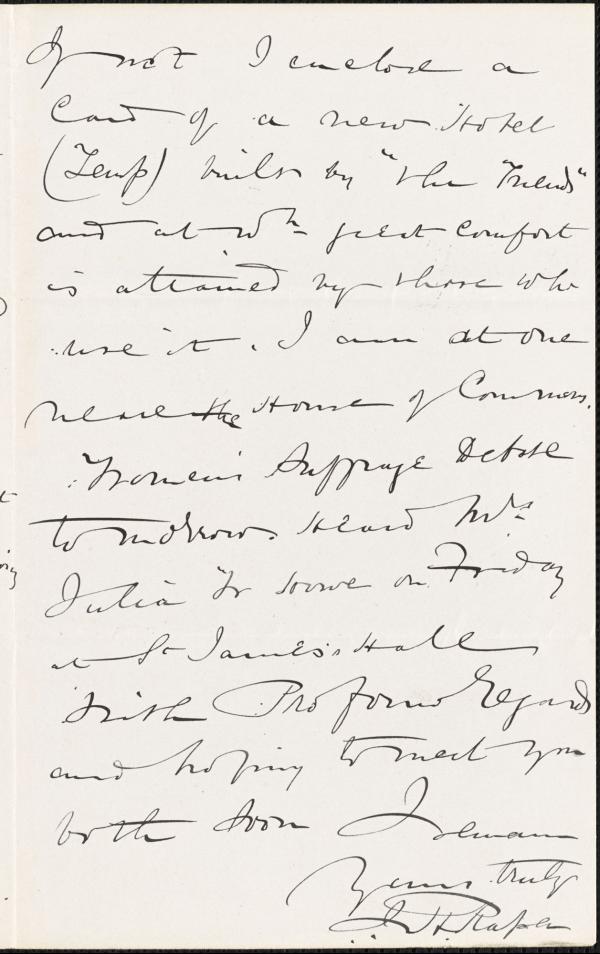 If not I enclose a
Card of a new Hotel
(Temp) built by "the "Friends"
and at wh great comfort
is attained by those who
use it. I am at one
near the House of Commons.
Women's Suffrage Debate
tomorrow. Heard Mrs
Julia W Howe on Friday
at St James's Hall
With Profound Regards
and hoping to meet you
both soon I remain
Yours truly
J. H. Raper